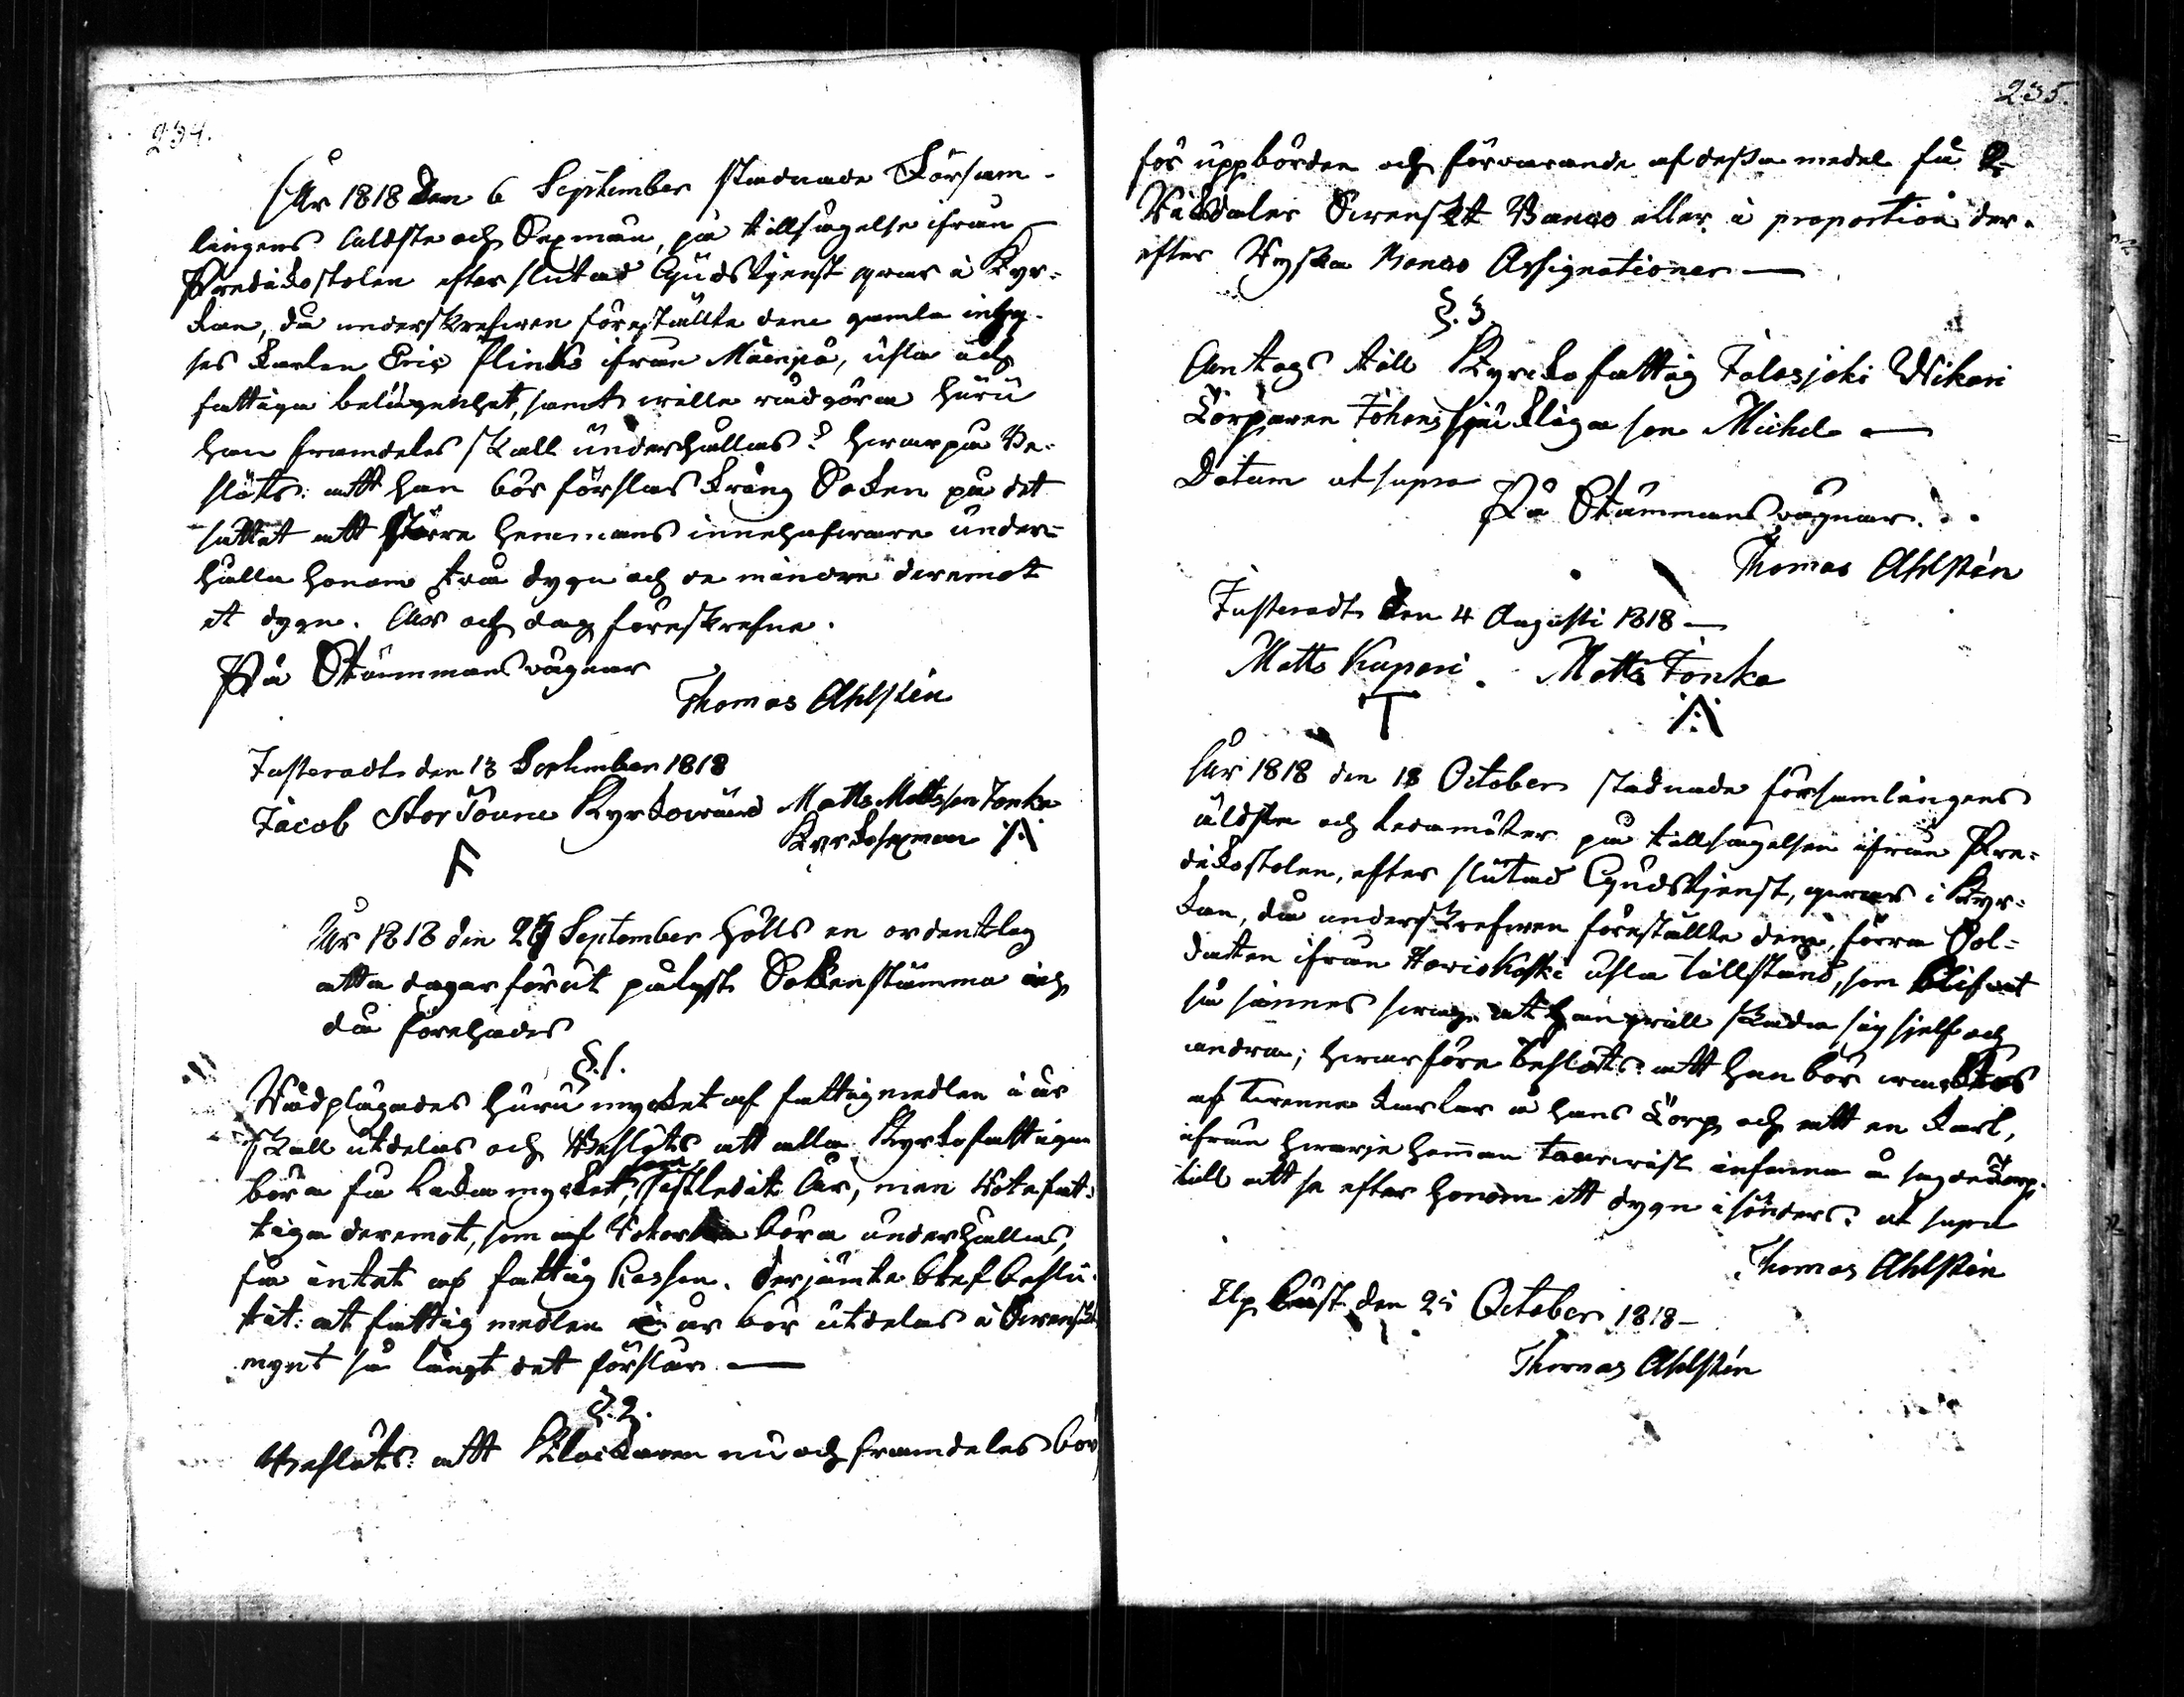 234.
År 1818 den 6 September stadnade Försam-
lingens äldste och Sexmän, på tillsägelse ifrån
Predikostolen efter slutad Gudstjenst qvar i Kyr-
kan, då underskrefwen föreställte den gamla inhy-
ses Karlen Eric Flinks ifrån Mäenpä, usla och
fattiga belägenhet, samt wille rådgöra huru
han framdeles skall underhållas? hwarpå Be-
slöts: att han bör förslas kring Soken på det
sättet att större hemmans innehafware under-
hålla honom två dygn och de mindre deremot
et dygn. År och dag föreskrefne.
På Stämmans vägnar
Thomas Ahlstén
Justeradt den 13 September 1818
Jacob Stor Kyrkowärd Matts Mattsson Tonka
Kyrkosexman
År 1818 den September hölls en ordentlig
åtta dagar förut pålyst Sokenstämma och
då förehades
§. 1.
Rådplägades huru mycket af fattigmedlen i år
skall utdelas och Beslöts att alla Kyrkofattiga
böra få lika mycket, som sistledit År, men Rotefat-
tiga deremot, som af Rotor böra underhållas,
få intet af fattig Kassan. Derjämte blef beslu-
tit: at fattig medlen i år bör utdelas i Swenskt
mynt så långt det förslår. —
§. 2.
Beslöts: att Klockaren nu och framdeles bör
235.
för uppbörden och förwarande af dessa medel få 2
Riksdaler Swenskt Banco eller i proportion der-
efter Ryska Banco Assignationer —
§. 3.
Antogs till Kyrckofattig Jalasjoki Wikari
Torparen Johans sjukliga son Michel —
Datum ut supra
På Stämmans vägnar.
Thomas Ahlstén
Justeradt den 4 Augusti 1818 —
Matts Kupari. Matts Tonka
År 1818 den 18 October stadnade församlingens
äldste och ledamöter på tillsägelsen ifrån Pre-
dikostolen, efter slutad Gudstjenst, qwar i Kyr-
kan, då underskrefwen föreställte den förra Sol-
daten ifrån Hariokoski usla tillstånd, som blifwit
så sinnes swag at han will skada sig sjelf och
andra; hwarföre beslöts: att han bör waktas
af twenne karlar i hans Torp och att en karl,
ifrån hwarje hemman turwist infinna å sagde Torp
till att se efter honom ett dygn i sönder. ut supra
Thomas Ahlstén
Upläst den 25 October 1818 —
Thomas Ahlstén